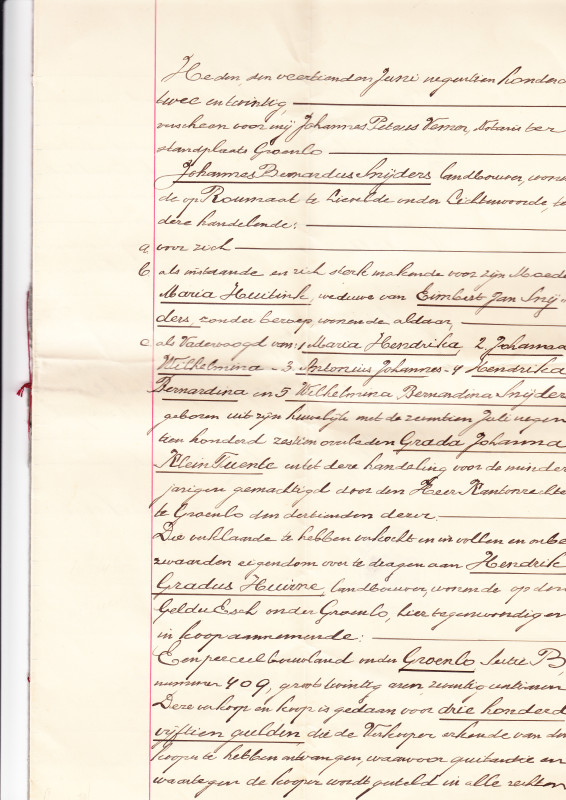 Heden, den veertienden Juni negentien honderd
twee en twintig,
verscheen voor mij Johannes Petrus Vernon, Notaris ter
standplaats Groenlo
Johannes Bernardus Snijders landbouwer, wonen
de op Roumaat te Lievelde onder Lichtenvoorde, te
dere handelende:
a voor zich
b als instaande en zich sterk makende voor zijn Moeder
Maria Huitink, weduwe van Eimbert Jan Snij-
ders, zonder beroep, wonende aldaar,
c als Vadervoogd van: 1 Maria Hendrika, 2 Johanna
Wilhelmina - 3 Antonius Johannes - 4 Hendrika
Bernardina en 5 Wilhelmina Bernardina Snijders
geboren uit zijn huwelijk met de zeventien Juli negen
tien honderd zestien overleden Grada Johanna
Klein Tuente en tot deze handeling voor de minder
jarigen gemachtigd door den Heer Kantonrechter
te Groenlo den dertienden dezer.
Die verklaarde te hebben verkocht en in vollen en onbe
zwaarden eigendom over te dragen aan Hendrik
Gradus Huirne, landbouwer, wonende op den
Gelder Esch onder Groenlo, hier tegenwoordig en
in koop aannemende:
Een perceel bouwland onder Groenlo Sectie B,
nummer 409, groot twintig aren zeventig centiaren
Deze verkoop en koop is gedaan voor drie honderd
vijftien gulden die de Verkooper erkende van den
kooper te hebben ontvangen, waarvoor quitantie en
waartegen de kooper wordt gesteld in alle rechten